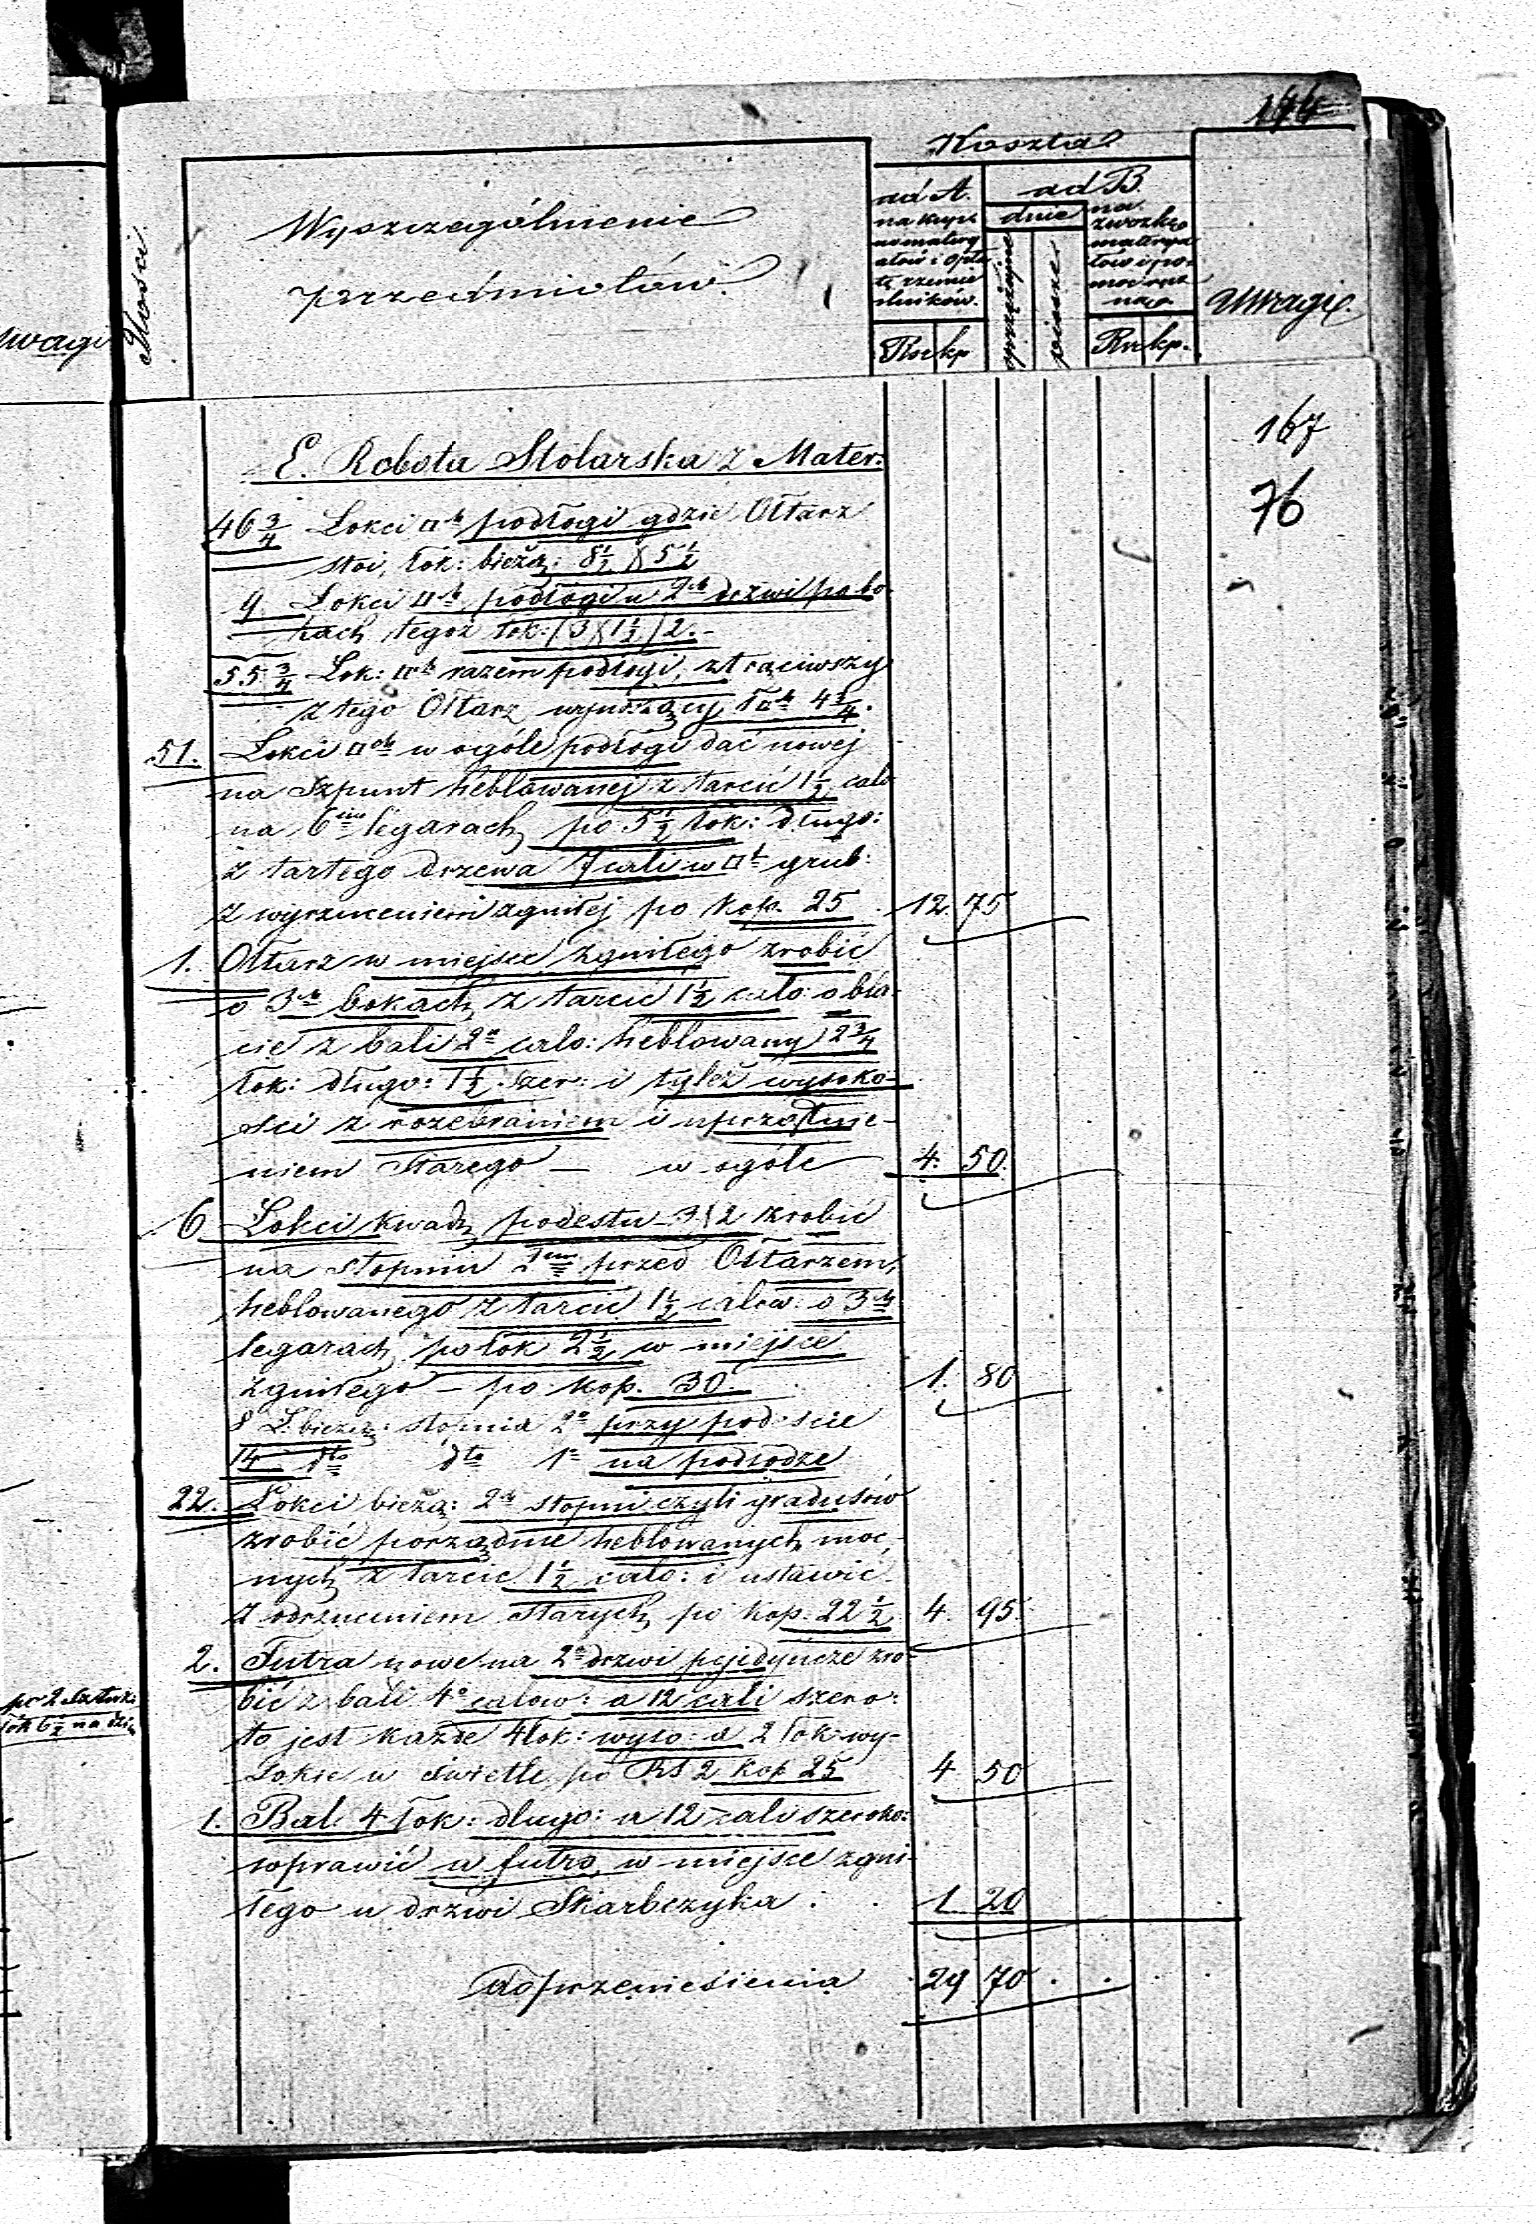 144
Koszta
Wyszczególnienie
przedmiotów.
Ilości.
ad A.
na kupno matery
ałów i opła
tę rzemie
ślników.
ad B.
dnie
sprzężajne
piesze
na
zwózkę
materya
łów i po-
moc ręcz
ną
Uwagi.
Rs kp
Rs kp.
uwagi
167
76
E. Robota Stolarska z Mater:
46 3/4 Łokci □ch podłogi gdzie Ołtarz
stoi, łok: bieżą: 8 1/2 X 5 1/2
9. Łokci □ch podłogi u 2ch drzwi po bo-
kach tegoż łok: (3 X 1 1/2) 2.-
55 3/4 Łok: □ch razem podłogi, ztrąciwszy
z tego Ołtarz wynoszący Ł□ch 4 3/4.
51. Łokci □ch w ogóle podłogi dać nowej
na Szpunt heblowanej z tarcic 1 1/2 calo
na 6ciu legarach po 5 1/2 łok: długo:
z tartego drzewa 7 cali w □t grub:
z wyrzuceniem zgniłej po kop. 25 12. 75
1. Ołtarz w miejsce zgniłego zrobić
o 3ch bokach z tarcic 1 1/2 calo: o bla-
cie z bali 2o calo: heblowany 2 3/4
łok: długo: 1 1/2 szer: i tyleż wysoko-
ści z rozebraniem i uprzątnie-
niem Starego — w ogóle 4. 50.
6 Łokci kwadr podestu 3 X 2 zrobić
na stopniu przed Ołtarzem,
heblowanego z tarcic 1 1/2 calow: o 3ch
legarach po łok 2 1/2 w miejsce
zgniłego — po kop. 30. 1. 80
8 Ł. bieżą: stopnia 2o przy podeście
14 dto dto 1o na podłodze
22. Łokci bieżą: 2ch stopni czyli gradusów
zrobić porządnie heblowanych moc-
nych z tarcic 1 1/2 calo: i ustawić
z odrzuceniem Starych po kop. 22 1/2 4. 95.
2. Futra nowe na 2e drzwi pojedyncze zro-
bić z bali 4o calow: a 12 cali szero:
to jest każde 4 łok: wyso: a 2 łok: wy-
sokie w świetle po RS 2 kop 25 4 50
1. Bal 4 łok: długo: a 12 cali szeroko:
wprawić w futro, w miejsce zgni-
łego u drzwi Skarbczyka : 1 20
do przeniesienia 29 70
po 2 Sztuk:
łok 6 1/2 na